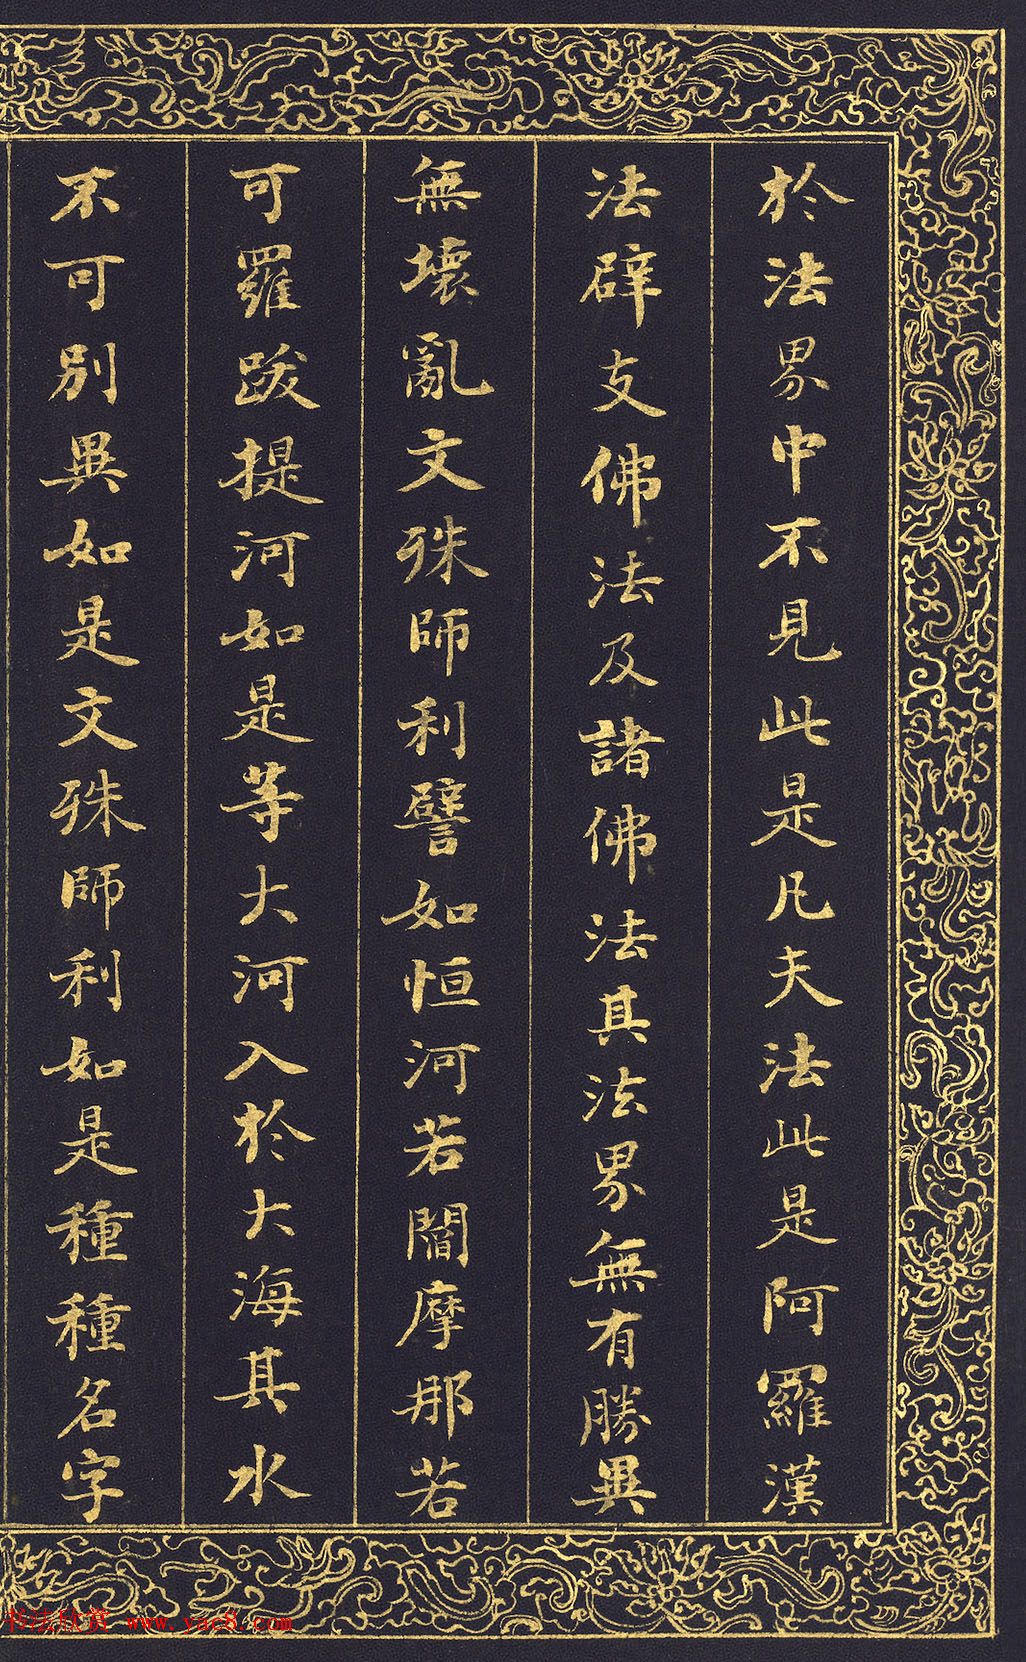 於法界中不見此是凡夫法此是阿羅漢
法辟支佛法及諸佛法其法界無有勝異
無壞亂文殊師利譬如恒河若閻摩那若
可羅跋提河如是等大河入於大海其水
不可別異如是文殊師利如是種種名字
书法欣赏 www.yac8.com